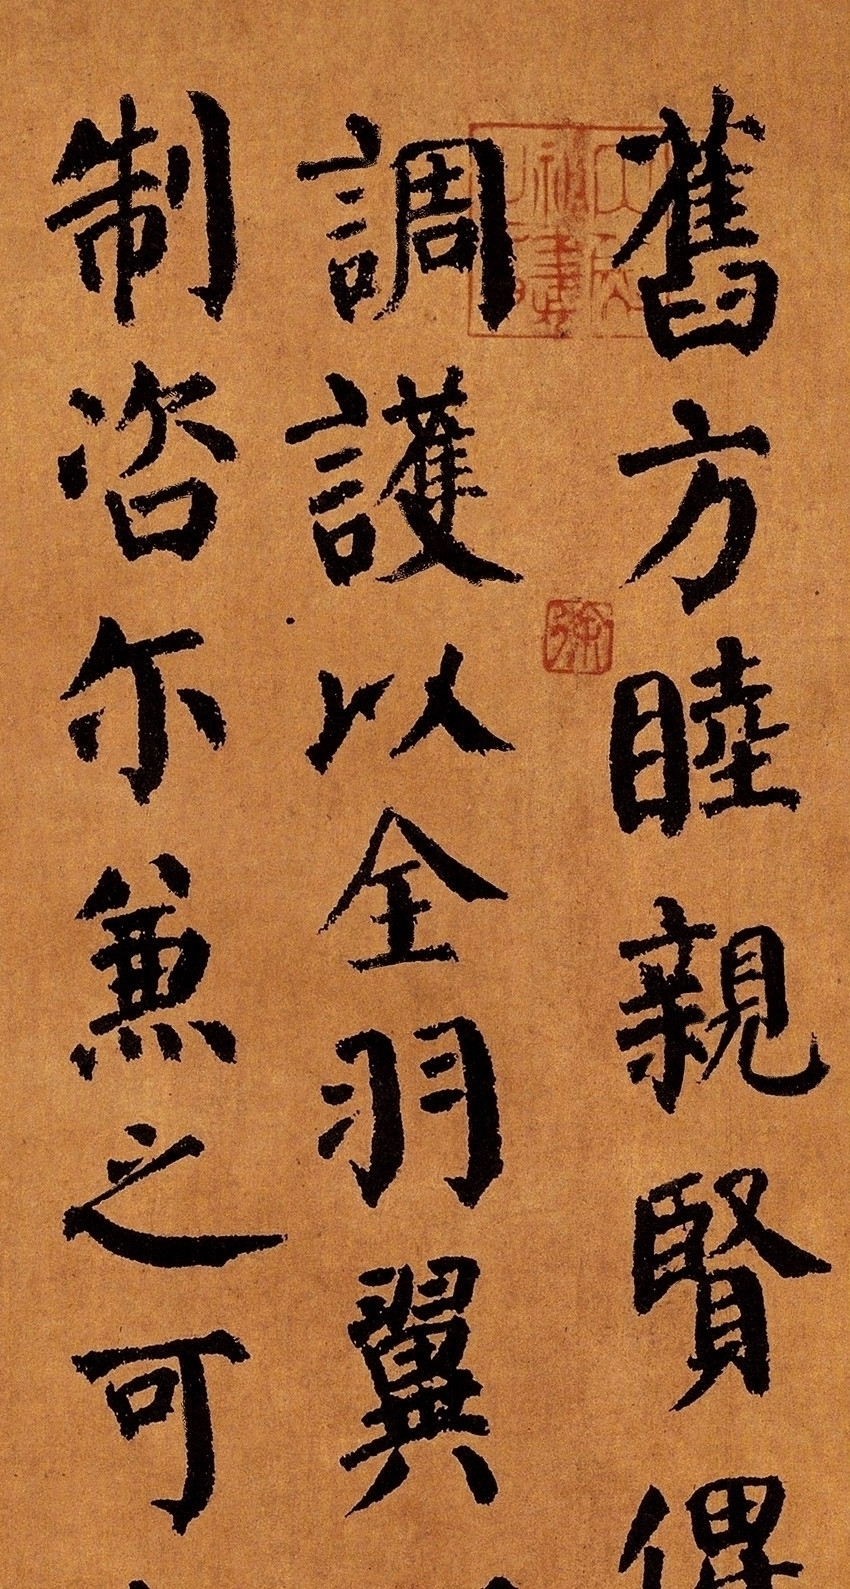 舊方睦親賢俾
調護以全羽翼
制咨尔兼之可